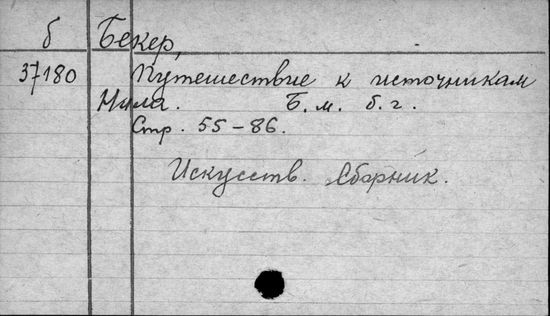 б Бекер,
37180 Путешествие к источникам
Нила. Б. м. б. г.
Стр. 55-86.
Искусств. Сборник.